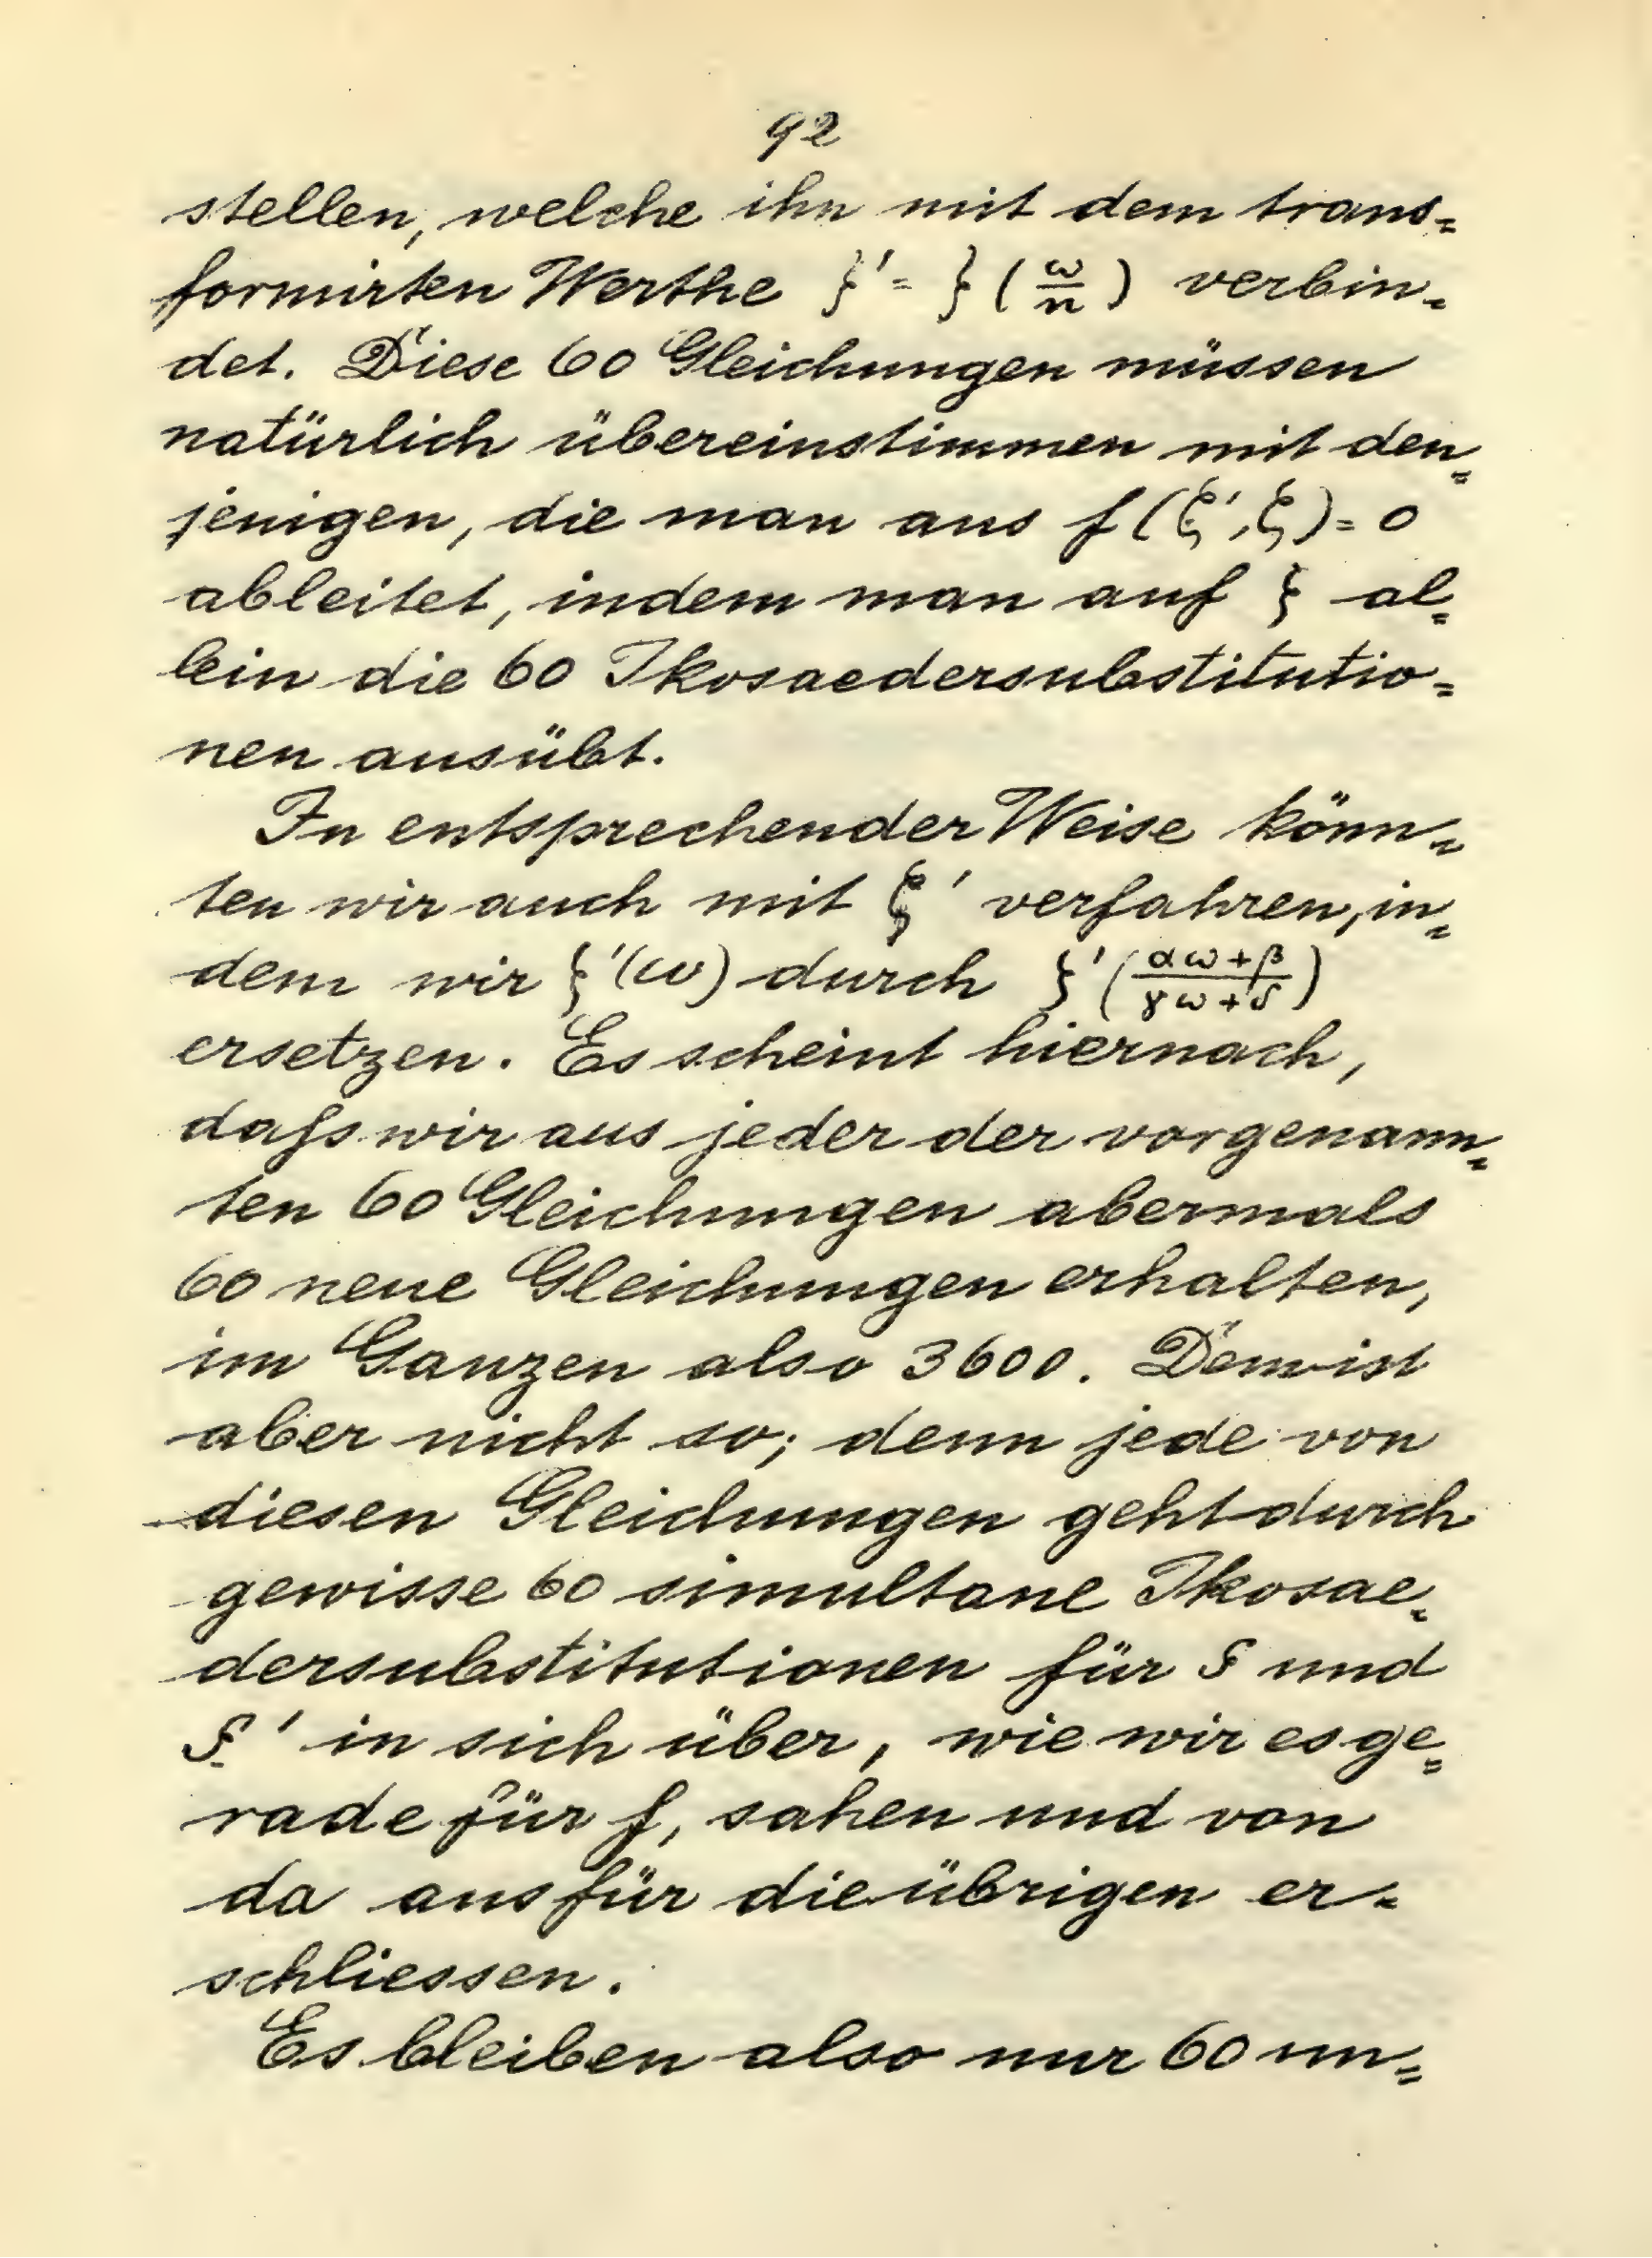 92
stellen, welche ihn mit dem trans=
formirten Werthe ξ' = ξ (ω/n) verbin=
det. Diese 60 Gleichungen müssen
natürlich übereinstimmen mit den=
jenigen, die man aus f(ξ', ξ) = 0
ableitet, indem man auf ξ al=
lein die 60 Ikosaedersubstitutio=
nen ausübt.
In entsprechender Weise könn=
ten wir auch mit ξ' verfahren, in=
dem wir ξ'(ω) durch ξ'((αω+β)/(γω+δ))
ersetzen. Es scheint hiernach,
dafs wir aus jeder der vorgenann=
ten 60 Gleichungen abermals
60 neue Gleichungen erhalten,
im Ganzen also 3600. Dem ist
aber nicht so; denn jede von
diesen Gleichungen geht durch
gewisse 60 simultane Ikosae=
dersubstitutionen für ξ und
ξ' in sich über, wie wir es ge=
rade für f, sahen und von
da aus für die übrigen er=
schliessen.
Es bleiben also nur 60 un=